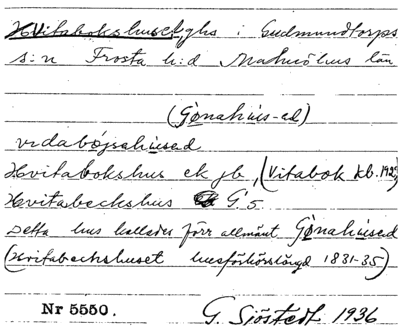 Hvitabokshuset, lghs i Gudmundtorps
s:n Frosta h:d Malmöhus län
(Gonahus-ed)
vidabojsahused
Hvitabokshus ek jb, (Vitabok kb. 192
Hvitabeckshus G 5
Detta hus kallades förr allmänt Gonahused
(Hvitabeckshuset husförhörslängd 1831-35)
Nr 5550. G. Sjöstedt. 1936